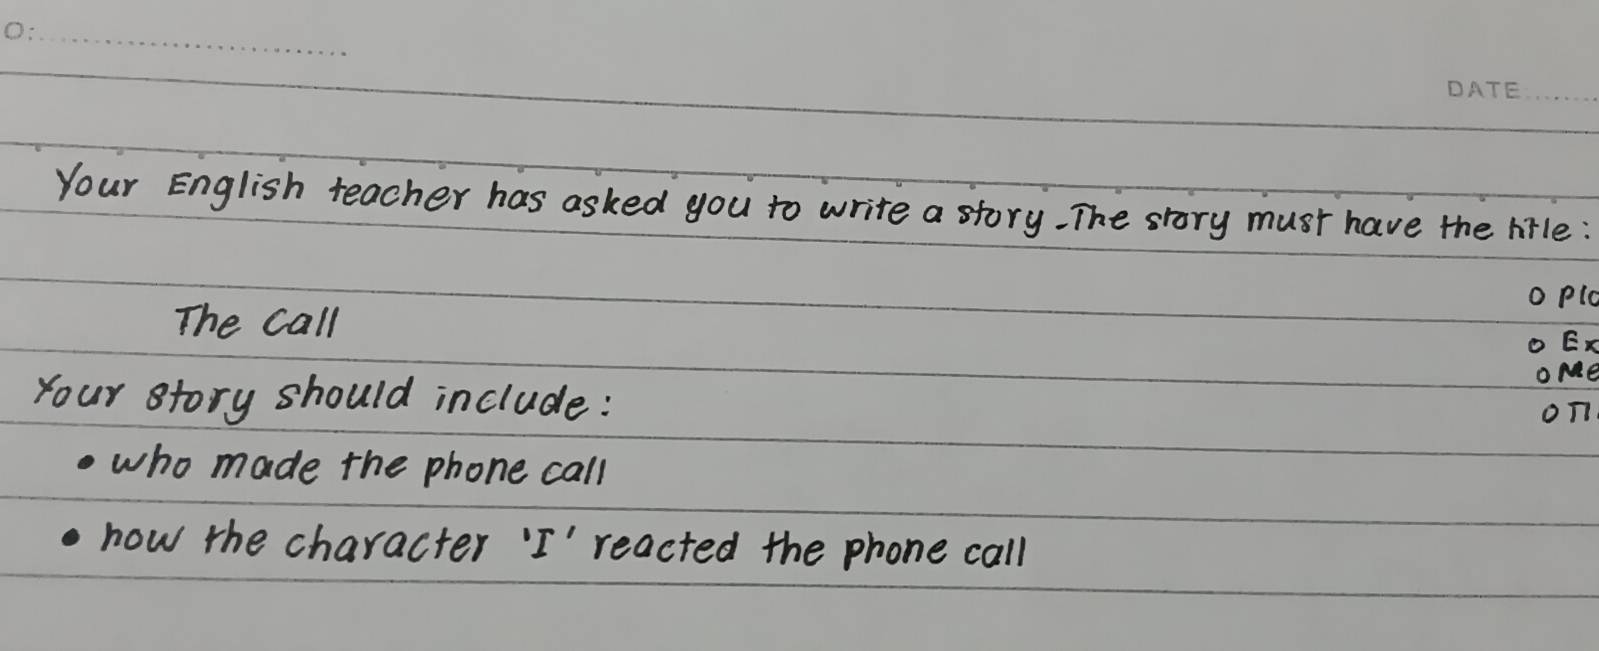 O:
DATE
Your English teacher has asked you to write a story. The story must have the title:
The Call
Your story should include:
• who made the phone call
• how the character 'I' reacted the phone call